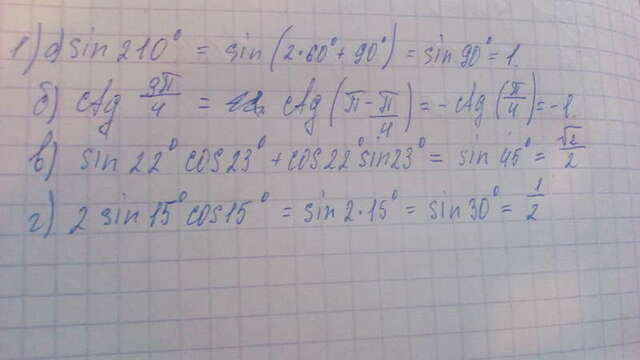 1) а) sin 210° = sin (2·60° + 90°) = sin 90° = 1.
б) ctg 9π/4 = ctg (π - π/4) = - ctg (π/4) = -1.
в) sin 22° cos 23° + cos 22° sin 23° = sin 45° = √2/2
г) 2 sin 15° cos 15° = sin 2·15° = sin 30° = 1/2